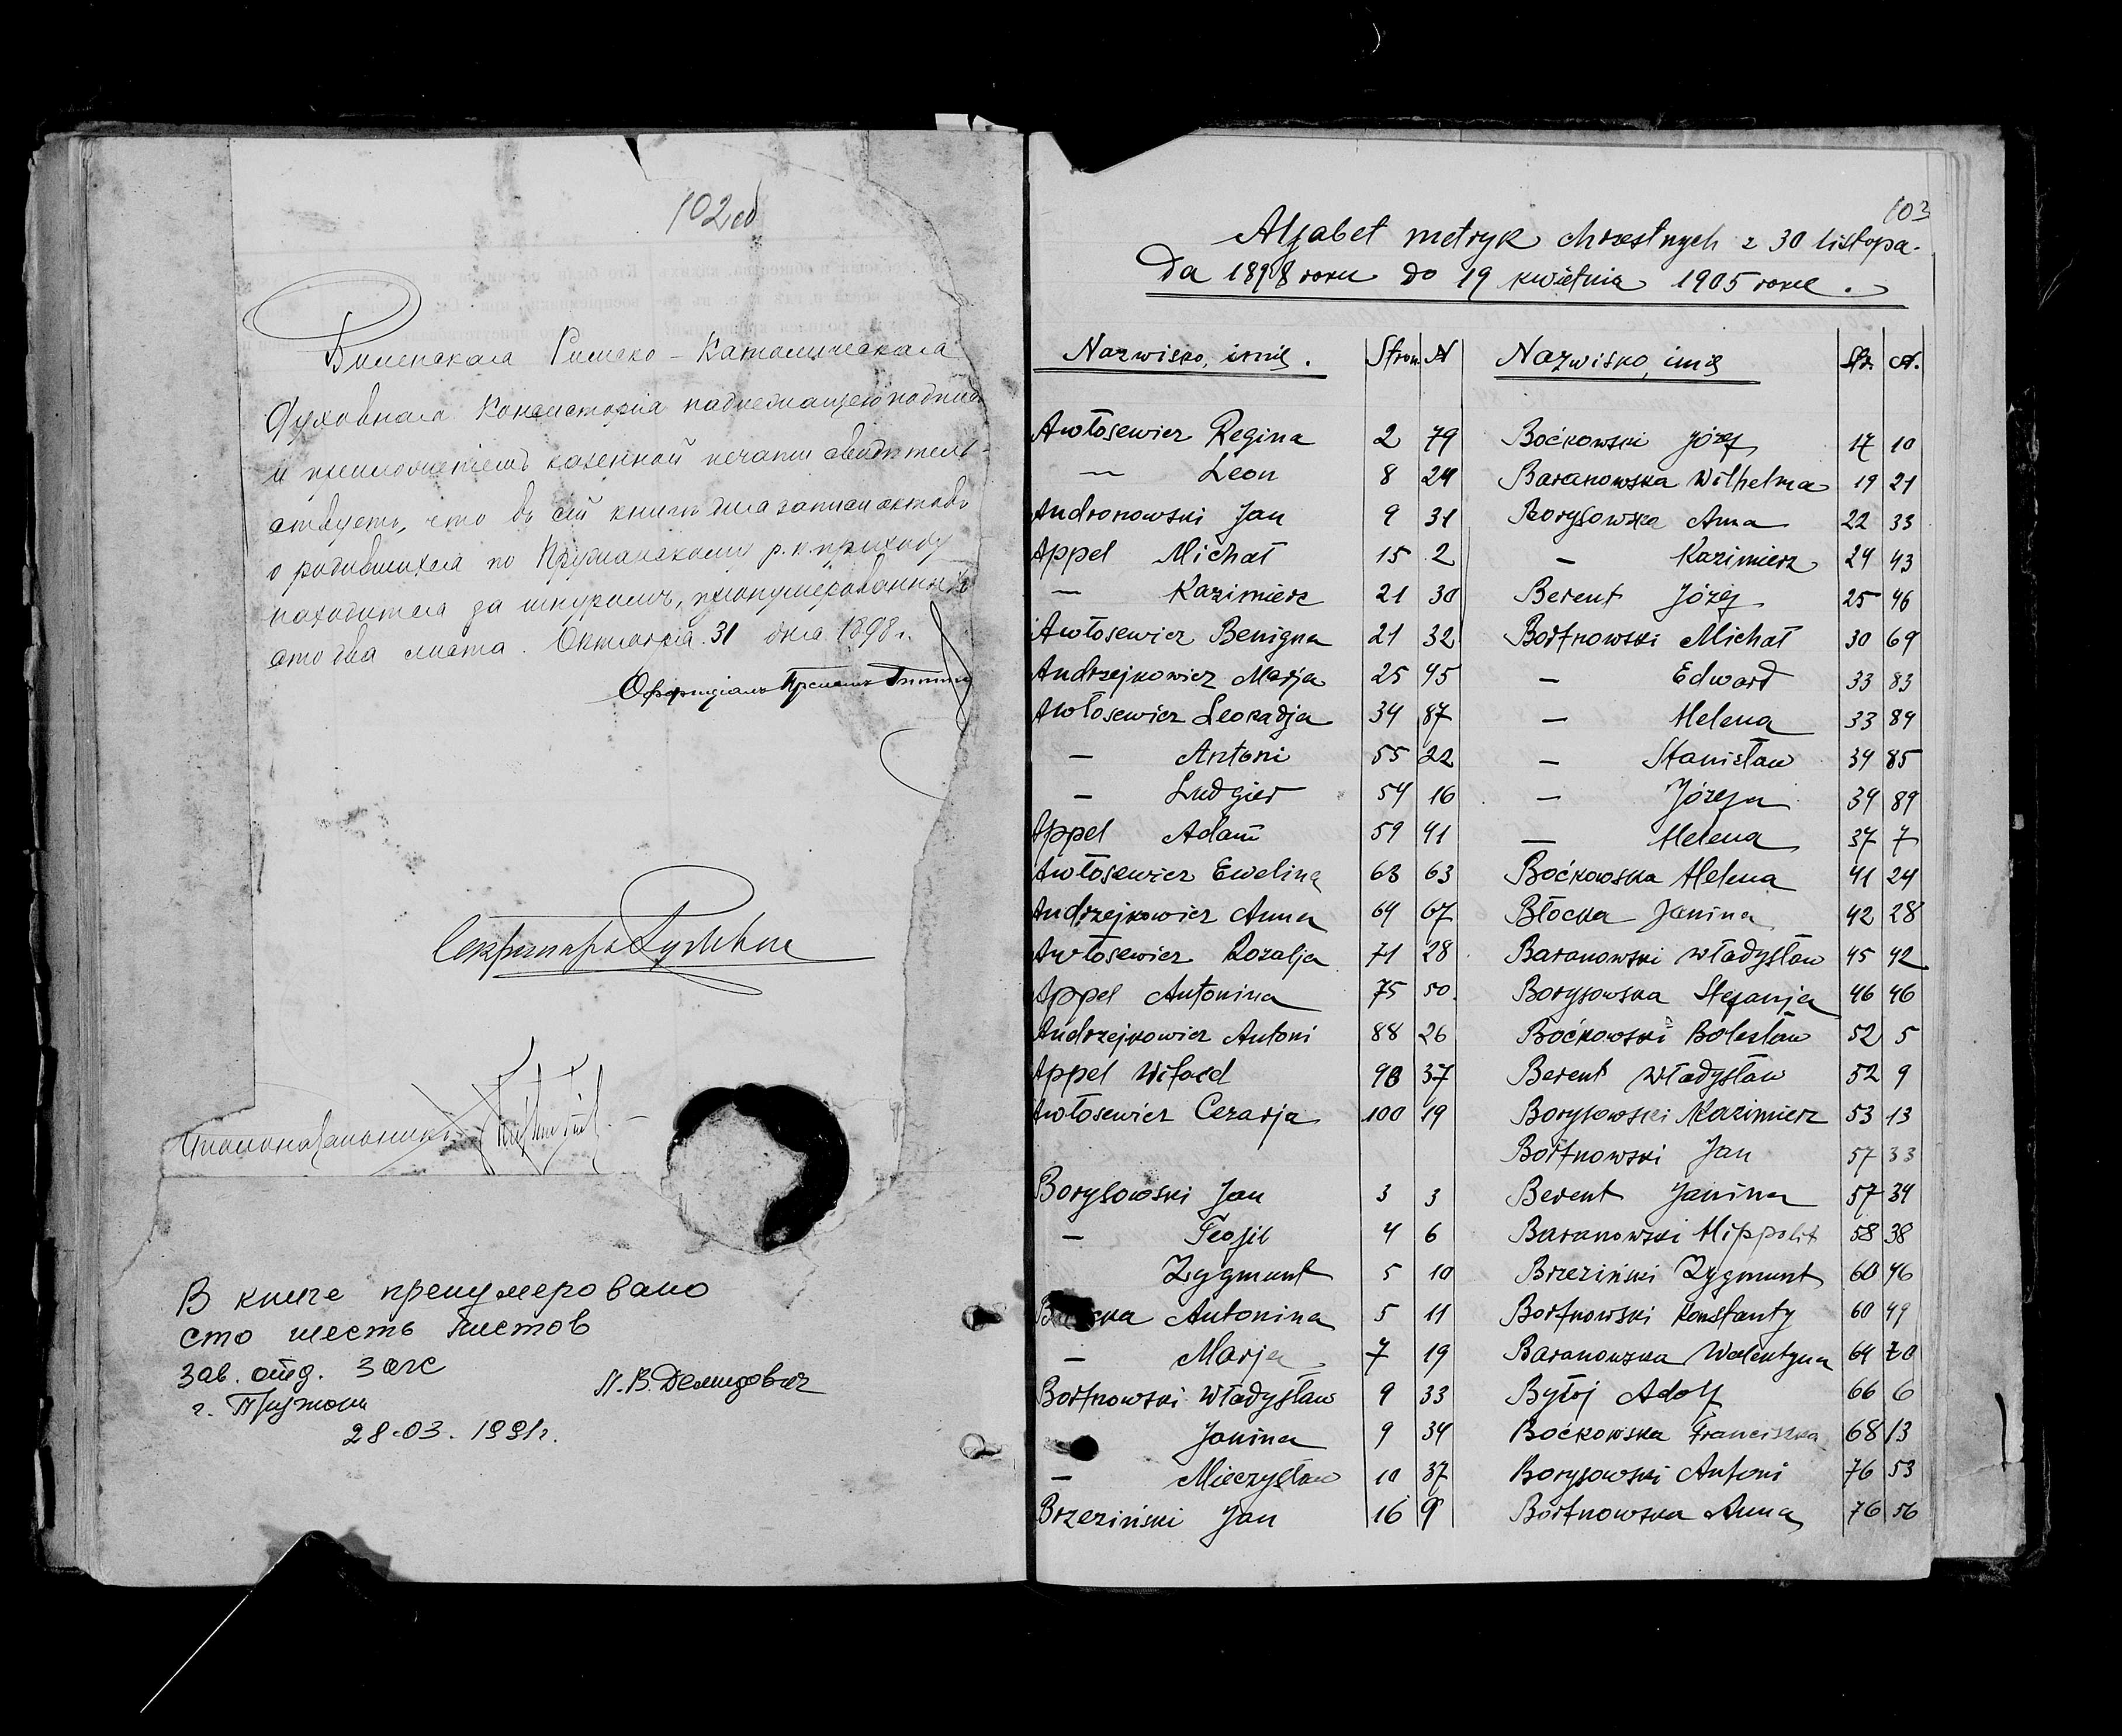 102 об
Виленская Римско-Католическая
Духовная Консисторія надлежащею подписью
и приложеніемъ казенной печати свидѣтель-
ствуетъ, что въ сей книгѣ для записи актовъ
о родившихся по Пружанскому р.к. приходу
находится за шнуромъ, пронумерованныхъ
сто два листа. Октября 31 дня 1898 г.
Оффиціалъ Прелатъ
Секретарь
Столоначальникъ
В книге пренумеровано
сто шесть листов
Зав. отд. Загс
г. Пружаны
Л.В. Демидович
28-03. 1991г.
103
Alfabet metryk chrzestnych z 30 listopa-
da 1898 roku do 19 kwietnia 1905 roku.
Nazwisko, imię. Stron. N Nazwisko, imię Str. N.
Awłosewicz Regina 2 79 Boćkowski Józef 17 10
— Leon 8 24 Baranowska Wilhelma 19 21
Andronowski Jan 9 31 Borysowska Anna 22 33
Appel Michał 15 2 — Kazimierz 24 43
— Kazimierz 21 30 Berent Józef 25 46
Awłosewicz Benigna 21 32 Bortnowski Michał 30 69
Andrzejkowicz Marja 25 45 — Edward 33 83
Awłosewicz Leokadja 34 87 — Helena 33 84
— Antoni 55 22 — Stanisław 34 85
— Ludgier 54 16 — Józefa 34 89
Appel Adam 59 41 — Helena 37 7
Awłosewicz Ewelina 63 63 Boćkowska Helena 41 24
Andrzejkowicz Anna 64 67 Błocka Janina 42 28
Awłosewicz Rozalja 71 28 Baranowski Władysław 45 42
Appel Antonina 75 50 Borysowska Stefanja 46 46
Andrzejkowicz Antoni 88 26 Boćkowski Bolesław 52 5
Appel Witold 90 37 Berent Władysław 52 9
Awłosewicz Cezarja 100 19 Borysowski Kazimierz 53 13
Bortnowski Jan 57 33
Borysowski Jan 3 3 Berent Janina 57 34
— Teofil 4 6 Baranowski Hippolit 58 38
Zygmunt 5 10 Brzeziński Zygmunt 60 46
Antonina 5 11 Bortnowski Konstanty 60 49
— Marja 7 19 Baranowska Walentyna 64 70
Bortnowski Władysław 9 33 Bytoj Adolf 66 6
Janina 9 34 Boćkowska Franciszka 68 13
— Mieczysław 10 37 Borysowski Antoni 76 53
Brzeziński Jan 16 9 Bortnowska Anna 76 56